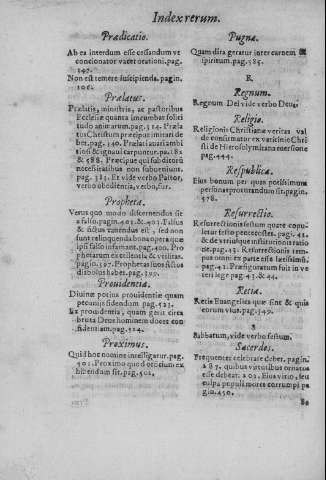 Index rerum.
Prædicatio.
Ab ea interdum esse cessandum vt
concionator vacet orationi. pag.
197.
Non est temere suscipienda. pagin.
106.
Prælatus.
Prælatis, ministris, ac pastoribus
Ecclesiæ quanta incumbat soliti
tudo animarum. pag. 314. Præla
tus Christum præcipue imitari de
bet. pag. 340. Prælati auari ambi
tiosi & ignaui carpuntur. pa. 182
& 588. Præcipue qui subditorū
necessitatibus non subueniunt.
pag. 135. Et vide verbo Pastor,
verbo obedientia, verbo, sur.
Propheta.
Verus quo modo discernendus sit
a falso. pagin. 402. & 403. Falsus
& fictus vitandus est, sed non
sunt relinquenda bona opera quæ
ipsi falso infamant. pag. 400. Pro
phetarum excellentia & veritas.
pagin. 397. Prophetas suos fictos
diabolus habet. pag. 399.
Prouidentia.
Diuinæ potius prouidentiæ quam
pecuniis fidendum pag. 523.
Ex prouidentia, quam gerit circa
bruta Deus hominem docet con
fidentiam. pag. 524.
Proximus.
Quid hoc nomine intelligatur. pag.
501. Proximo quod officium ex
hibendum sit. pag. 502.
Pugna.
Quam dira geratur inter carnem &
spiritum. pag. 585.
R
Regnum.
Regnum Dei vide verbo Deus.
Religio.
Religionis Christianæ veritas val
de confirmatur ex vaticinio Chri
sti de Hierosolymitana euersione
pag. 444.
Respublica.
Eius bonum per quos potissimum
personas procurandum sit. pagin.
578.
Resurrectio.
Resurrectionis festum quare copu
letur festo pentecostes. pagi. 42.
& de vtriusque institutionis ratio
ne. pag. 43. Resurrectionis tem
pus omni ex parte esse lætissimū.
pag. 42. Præfiguratum fuit in ve
teri lege pag. 43. & 44.
Retia.
Retia Euangelica quæ sint & quis
eorum vsus. pag. 549.
S
Sabbatum, vide verbo festum.
Sacerdos.
Frequenter celebrare debet. pagin.
287. quibus virtutibus ornatus
esse debeat. 202. Eius vitio, seu
culpa populi mores corrumpi pa
gin. 450.
Sa